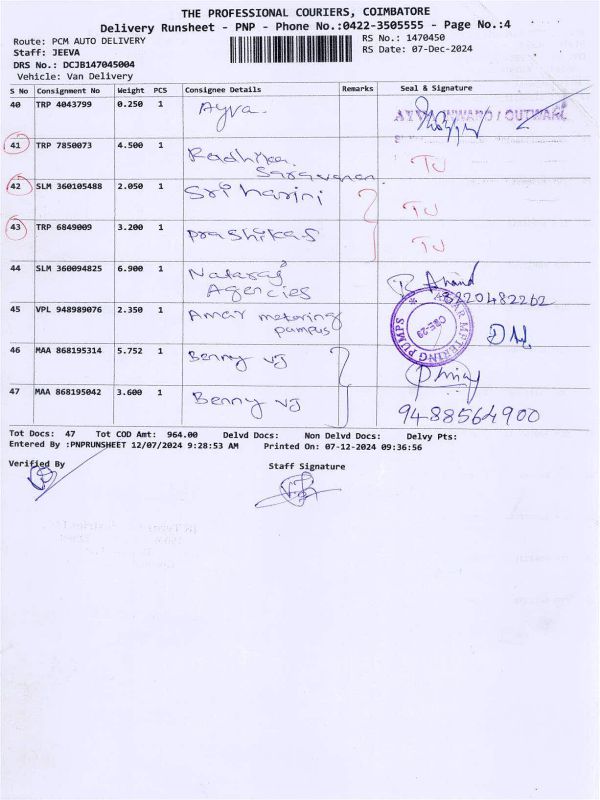 THE PROFESSIONAL COURIERS, COIMBATORE
Delivery Runsheet - PNP - Phone No.:0422-3505555 - Page No.:4
Route: PCM AUTO DELIVERY
RS No.: 1470450
Staff: JEEVA
RS Date: 07-Dec-2024
DRS No.: DCJB147045004
Vehicle: Van Delivery
S No Consignment No Weight PCS Consignee Details Remarks Seal & Signature
40 TRP 4043799 0.250 1 Ayva. AYVA INWARD / OUTWARD
41 TRP 7850073 4.500 1 Radhika Saravanan TJ
42 SLM 360105488 2.050 1 Sri harini TJ
43 TRP 6849009 3.200 1 Prashikas TJ
44 SLM 360094825 6.900 1 Nataraj Agencies R Anand
8820482262
45 VPL 948989076 2.350 1 Amar metering pumpus
METERING PUMPS
CBE-29
46 MAA 868195314 5.752 1 Benny vj
47 MAA 868195042 3.600 1 Benny vj 9488564900
Tot Docs: 47 Tot COD Amt: 964.00 Delvd Docs: Non Delvd Docs: Delvy Pts:
Entered By :PNPRUNSHEET 12/07/2024 9:28:53 AM Printed On: 07-12-2024 09:36:56
Verified By
Staff Signature